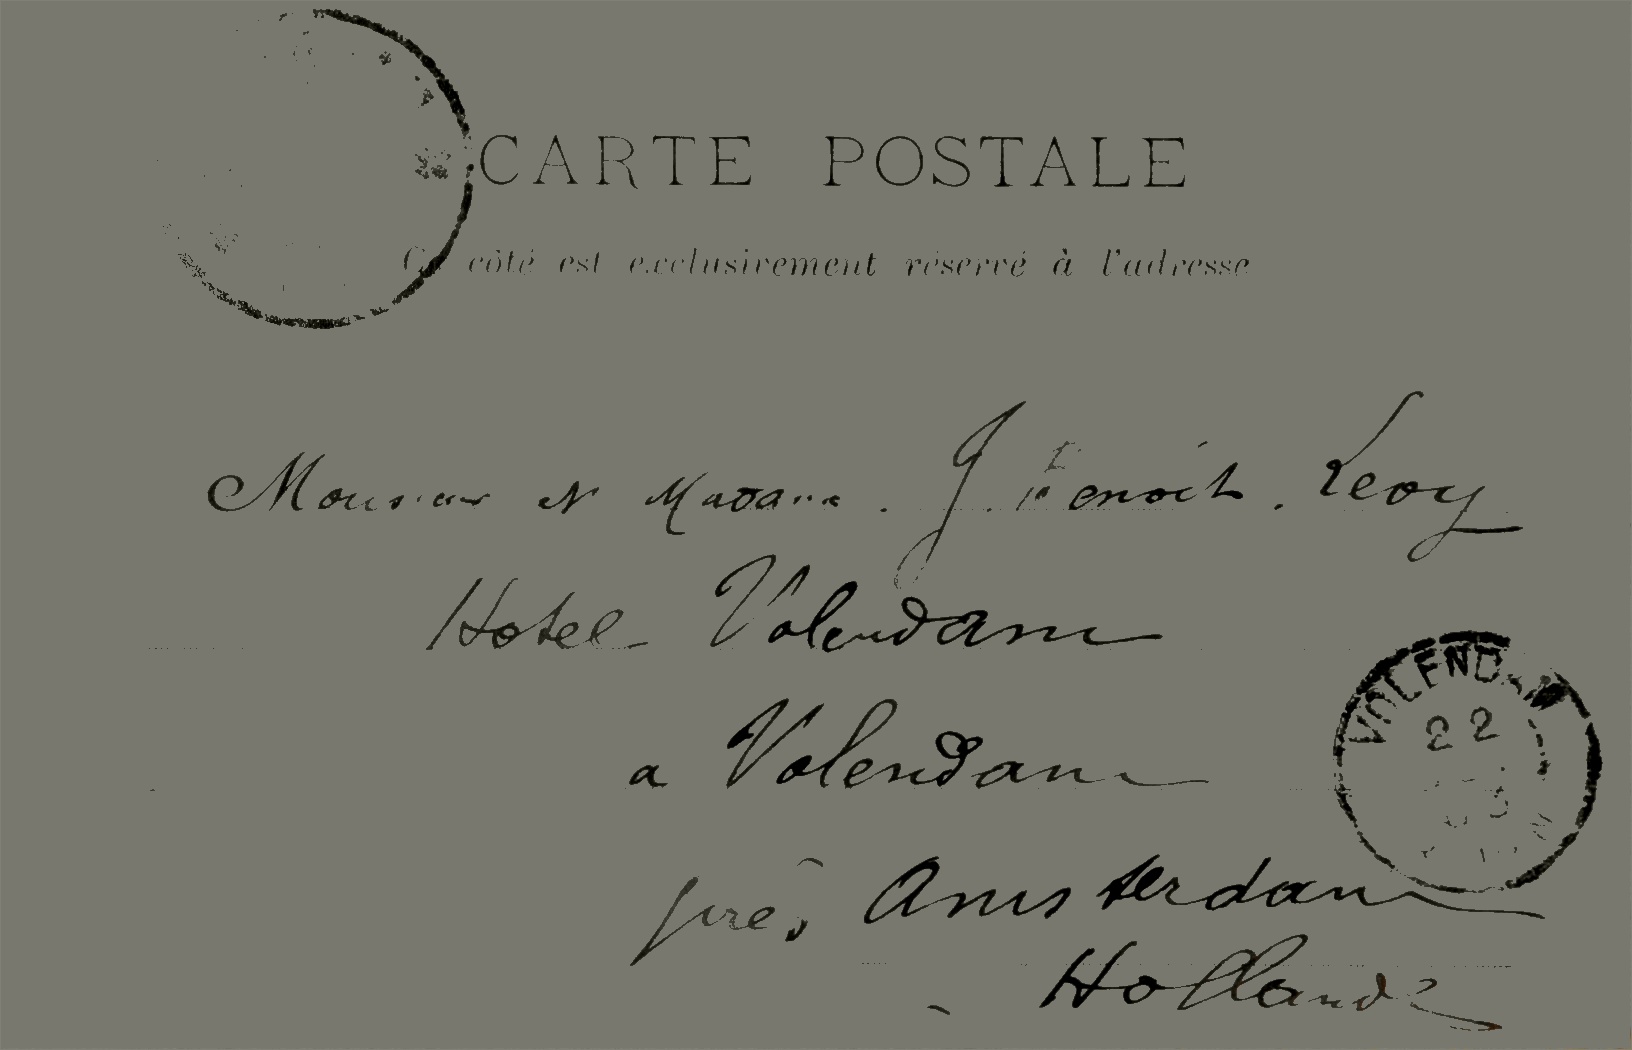 CARTE POSTALE
Ce côté est exclusivement réservé à l'adresse
Monsieur et Madame . J. Benoit . Levy
Hotel Volendam
a Volendam
près Amsterdam
Hollande
VOLENDAM
22